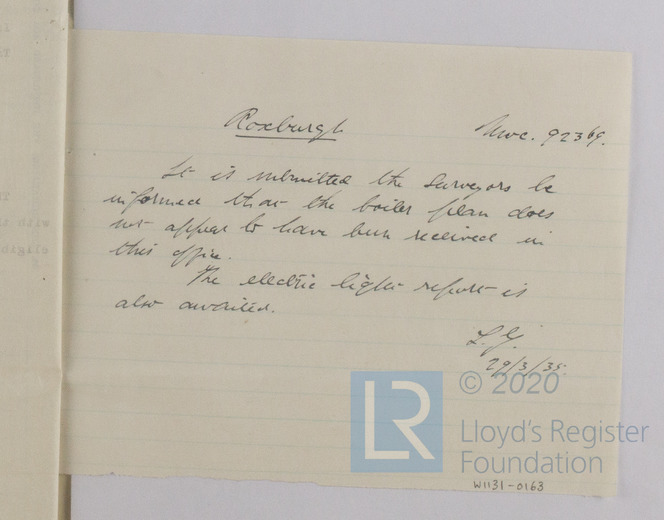 Roxburgh
Nwc. 92369.
It is submitted the Surveyors be
informed that the boiler plan does
not appear to have been received in
this office.
The electric light report is
also awaited.
29/3/35.
LR
© 2020
Lloyd's Register
Foundation
W1131-0163